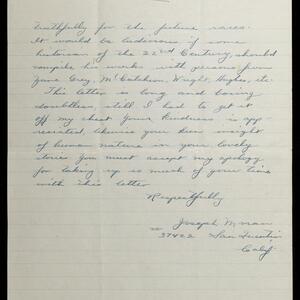 truthfully for the future races.
It would be ludicrous if some
historian of the 22nd Century, should
compile his works with gleams from
Zane Grey, McCutcheon, Wright, Hughes, etc.
This letter is long and boring
doubtless, still I had to get it
off my chest. Your kindness is app-
reciated, likewise your keen insight
of human nature in your lovely
stories. You must accept my apology
for taking up so much of your time
with this letter
Respectfully
Joseph
37422 San Quentin
Calif